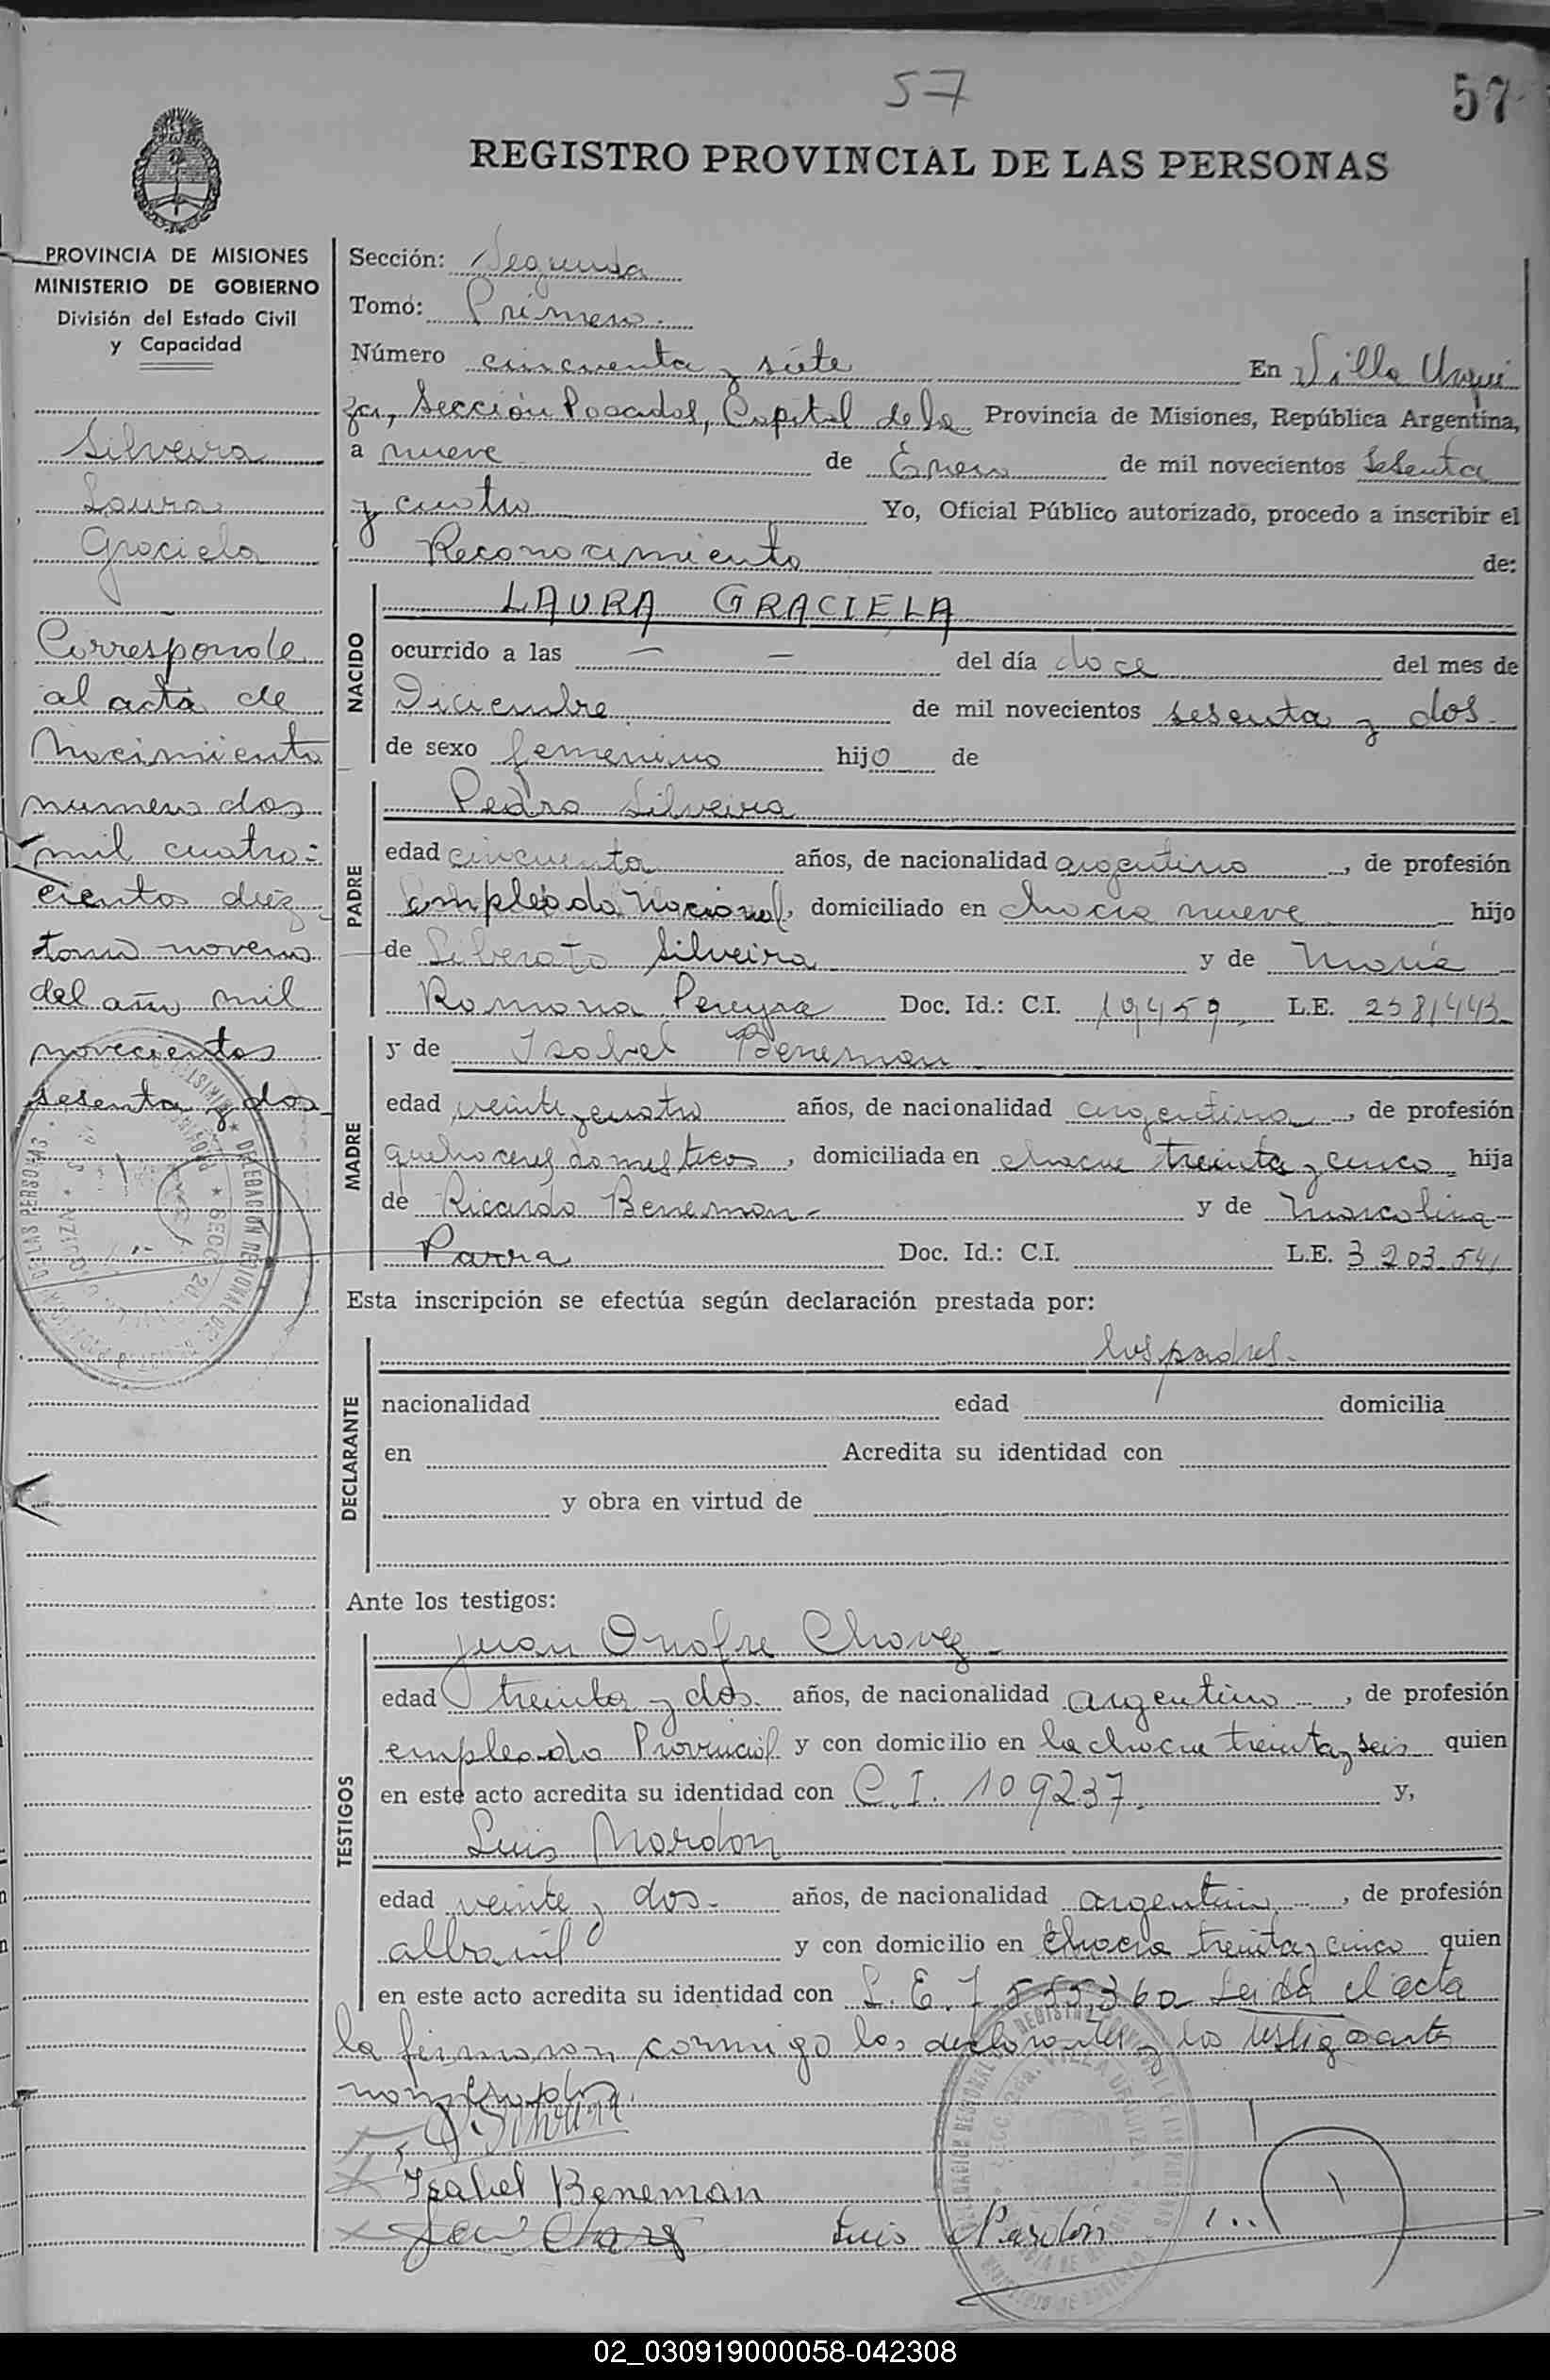 57
57
REGISTRO PROVINCIAL DE LAS PERSONAS
PROVINCIA DE MISIONES
MINISTERIO DE GOBIERNO
División del Estado Civil
y Capacidad
Silveira
Laura
Graciela
Corresponde
al acta de
Nacimiento
numero dos
mil cuatro-
cientos diez
tomo noveno
del año mil
novecientos
sesenta y dos
Sección: Segunda
Tomo: Primero.
Número cincuenta y siete En Villa Urqui
za, Sección Posadas, Capital de la Provincia de Misiones, República Argentina,
a nueve de Enero de mil novecientos sesenta
y cuatro Yo, Oficial Público autorizado, procedo a inscribir el
Reconocimiento de:
NACIDO
LAURA GRACIELA
ocurrido a las — — del día doce del mes de
Diciembre de mil novecientos sesenta y dos
de sexo femenino hijo de
PADRE
Pedro Silveira
edad cincuenta años, de nacionalidad argentino, de profesión
empleado Nacional, domiciliado en chacra nueve hijo
de Liberato Silveira y de María
Romona Pereyra Doc. Id.: C.I. 19459, L.E. 2581443
MADRE
y de Isabel Beneman
edad veinte y cuatro años, de nacionalidad argentina, de profesión
quehaceres domesticos, domiciliada en chacra treinta y cinco, hija
de Ricardo Beneman- y de Marcolina
Parra Doc. Id.: C.I. L.E. 3.203.541
Esta inscripción se efectúa según declaración prestada por:
DECLARANTE
los padres.
nacionalidad edad domicilia
en Acredita su identidad con
y obra en virtud de
Ante los testigos:
TESTIGOS
Juan Onofre Chavez
edad treinta y dos años, de nacionalidad argentino, de profesión
empleado Provincial y con domicilio en la chacra treinta y seis quien
en este acto acredita su identidad con C.I. 109237. y,
Luis Mardon
edad veinte y dos- años, de nacionalidad argentino, de profesión
albañil y con domicilio en chacra treinta y cinco quien
en este acto acredita su identidad con L.E. 7.555.360 Leida el acta
la firmaron conmigo los declarantes y los testigos ante
nombrados.
Isabel Beneman
Luis
02_030919000058-042308